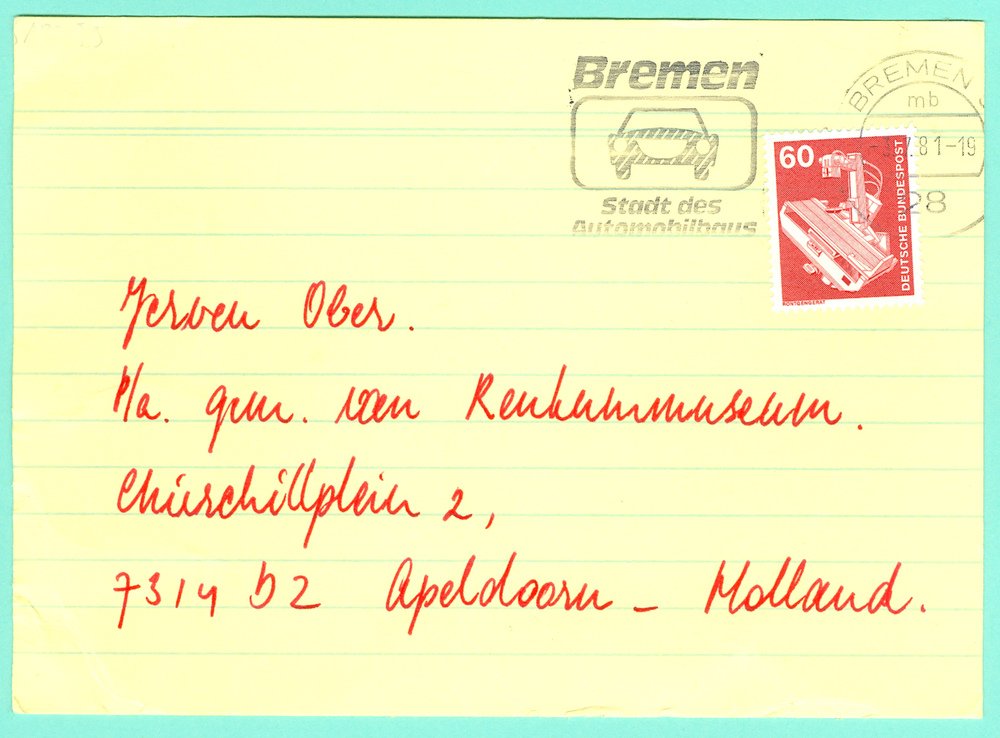 Bremen
Stadt des
Automobilbaus
BREMEN
mb
81-19
28
60
DEUTSCHE BUNDESPOST
RÖNTGENGERÄT
Jeroen Ober.
P/a. gem. van Renkummuseum.
Churchillplein 2,
7314 BZ Apeldoorn - Holland.